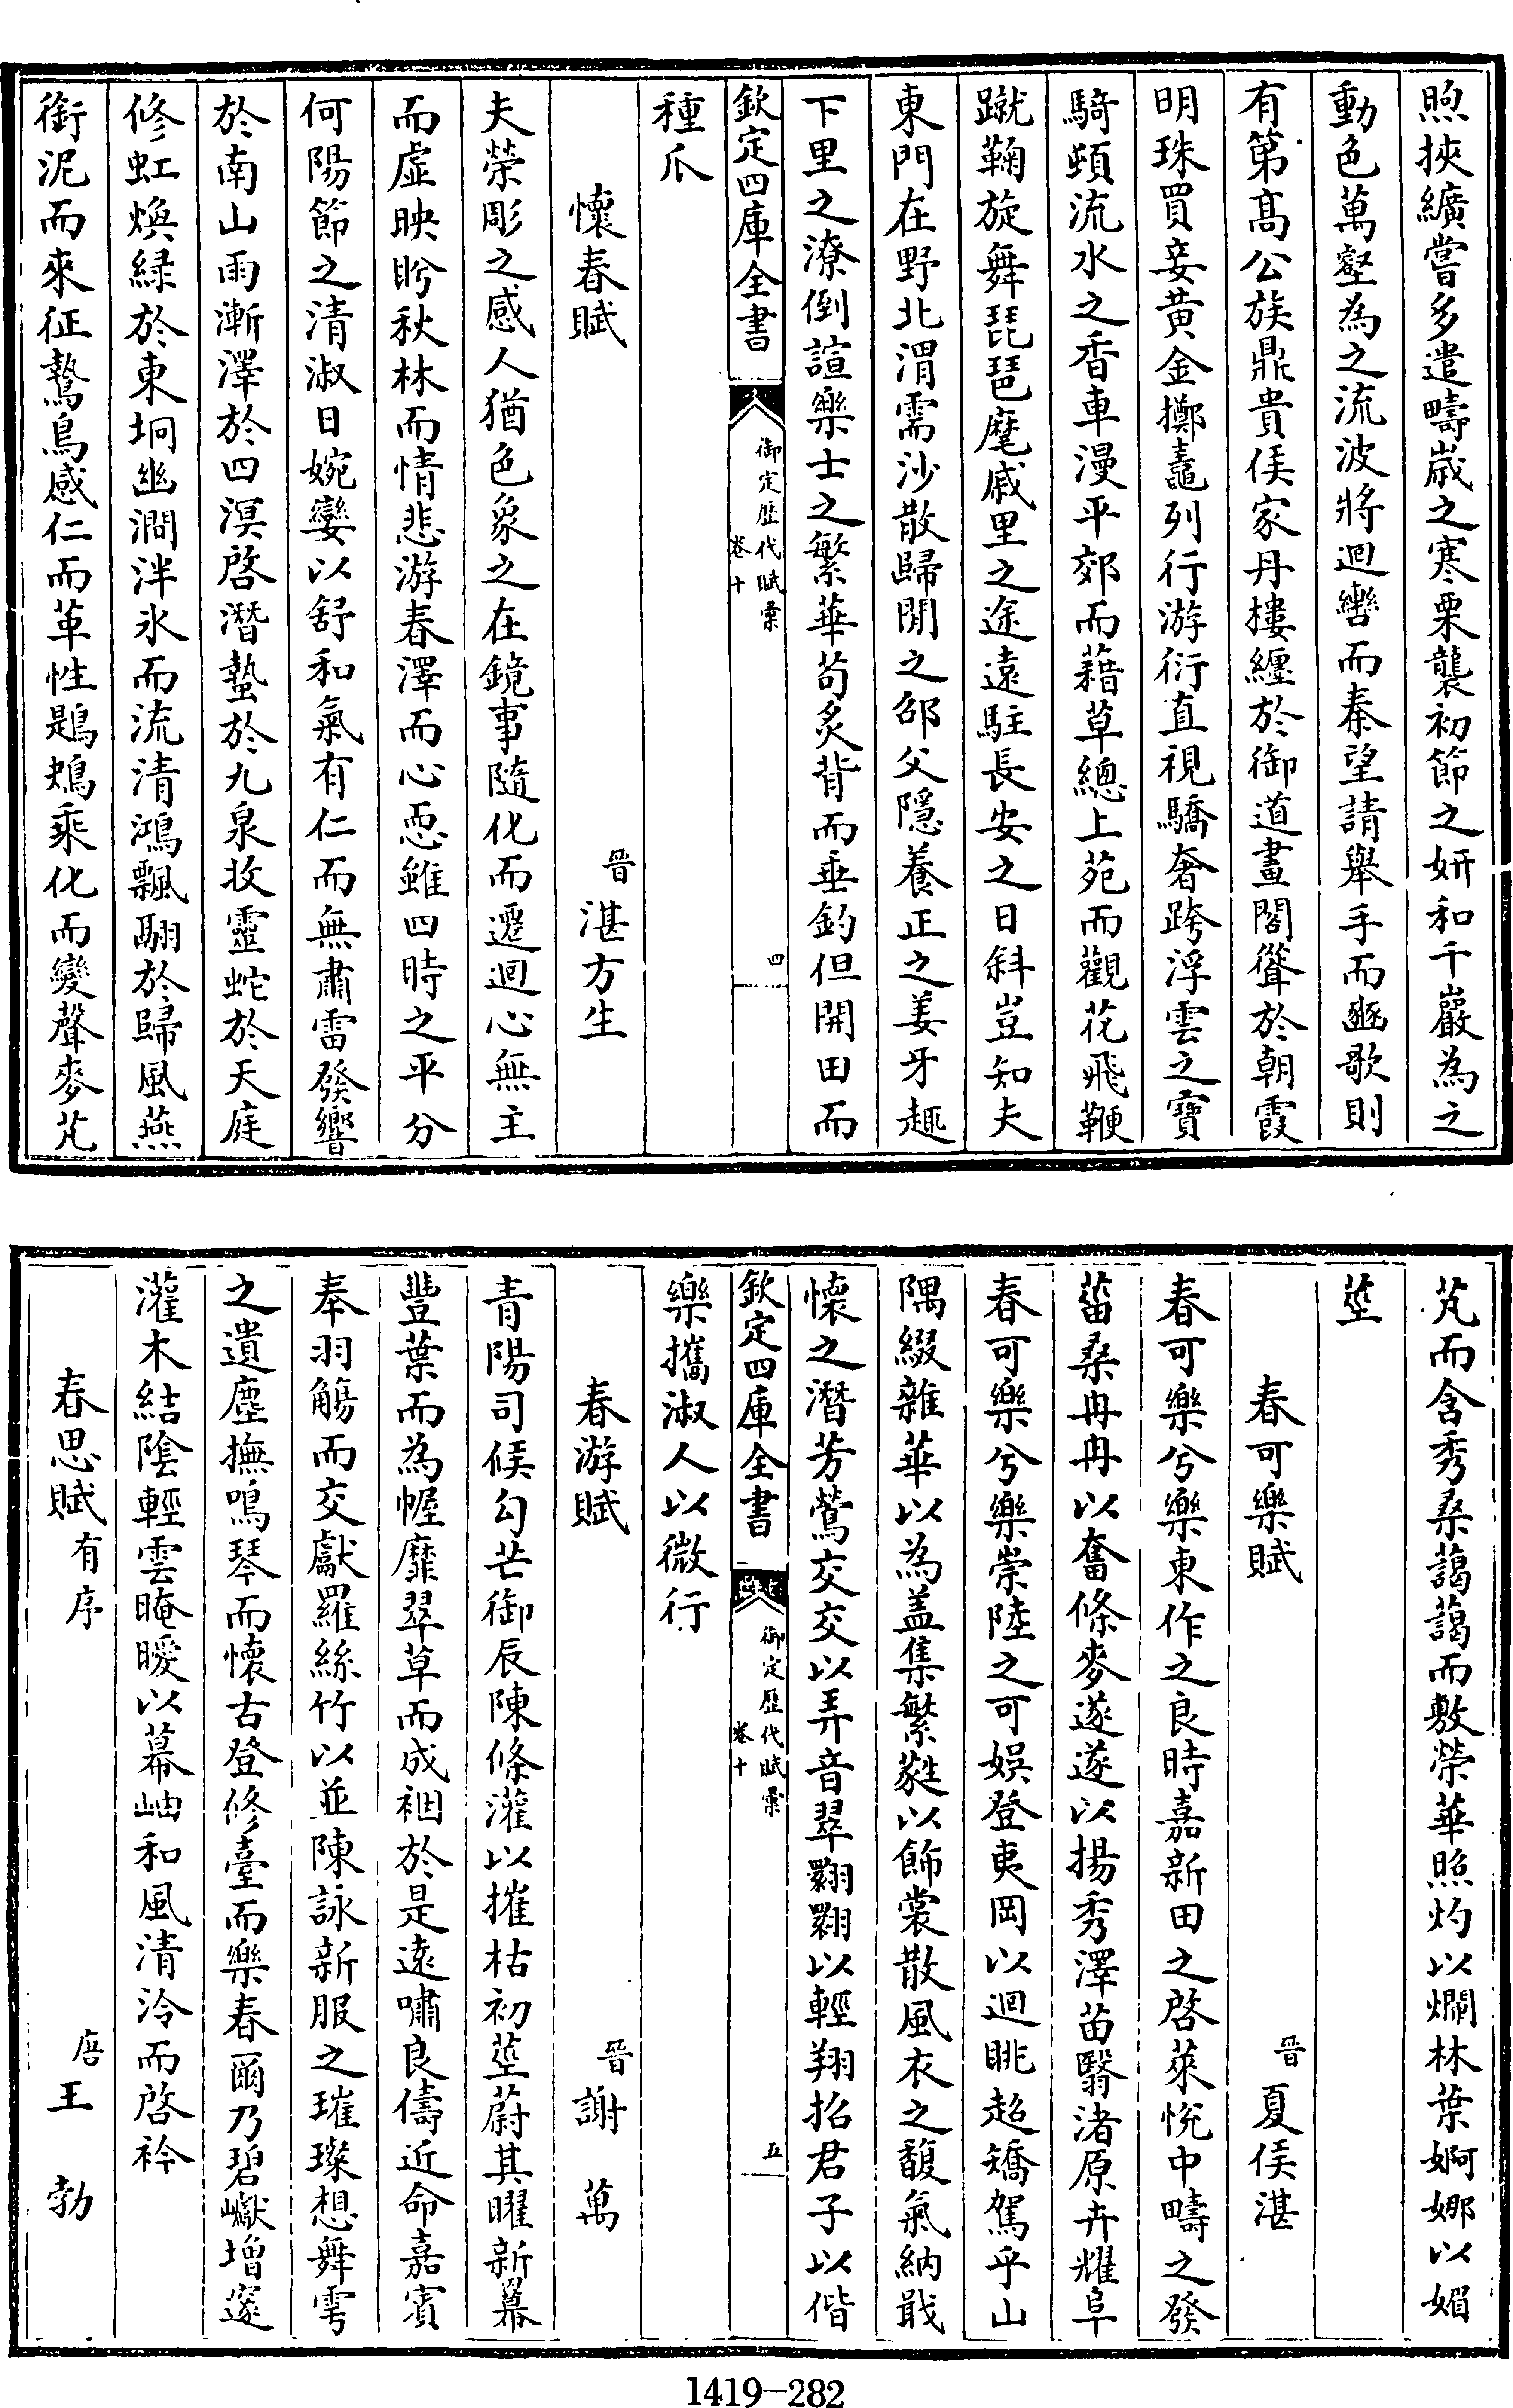 煦挾纊嘗多遣疇歲之寒栗襲初節之妍和千巖為之
動色萬壑為之流波將迴轡而秦望請舉手而豳歌則
有第髙公族鼎貴侯家丹樓纏於御道畫閣聳於朝霞
明珠買妾黄金擲鼃列行游衍直視驕奢跨浮雲之寶
騎頻流水之香車漫平郊而藉草總上苑而觀花飛鞭
蹴鞠旋舞琵琶麾戚里之途遠駐長安之日斜豈知夫
東門在野北渭需沙散歸閒之邵父隱養正之姜牙趣
下里之潦倒諠樂士之繁華茍炙背而垂釣但開田而
欽定四庫全書
御定歷代賦彙
卷十
四
種瓜
懷春賦
晉湛方生
夫榮彫之感人猶色象之在鏡事隨化而遷迴心無主
而虛映眄秋林而情悲游春澤而心恧雖四時之平分
何陽節之清淑日婉孌以舒和氣有仁而無肅雷發響
於南山雨漸澤於四溟啓潛蟄於九泉收靈蛇於天庭
修虹煥緑於東坰幽澗泮氷而流清鴻飄翮於歸風燕
銜泥而來征鷙鳥感仁而革性鶗鴂乘化而變聲麥芃
芃而含秀桑藹藹而敷榮華照灼以爛林葉婀娜以媚
莖
春可樂賦
晉夏侯湛
春可樂兮樂東作之良時嘉新田之啓萊悅中疇之發
菑桑冉冉以奮條麥遂遂以揚秀澤苗翳渚原卉耀阜
春可樂兮樂崇陸之可娛登夷岡以迴眺超矯駕乎山
隅綴雜華以為盖集繁蕤以飾裳散風衣之馥氣納戢
懷之潛芳鶯交交以弄音翠翾翾以輕翔招君子以偕
欽定四庫全書
御定歷代賦彙
卷十
五
樂攜淑人以微行
春游賦
晉謝萬
青陽司候勾芒御辰陳條灌以摧枯初莖蔚其曜新羃
豐葉而為幄靡翠草而成裀於是逺嘯良儔近命嘉賓
奉羽觴而交獻羅絲竹以並陳詠新服之璀璨想舞雩
之遺塵撫鳴琴而懷古登修臺而樂春爾乃碧巘增邃
灌木結隂輕雲晻曖以幕岫和風清泠而啓衿
春思賦有序
唐王勃
1419-282